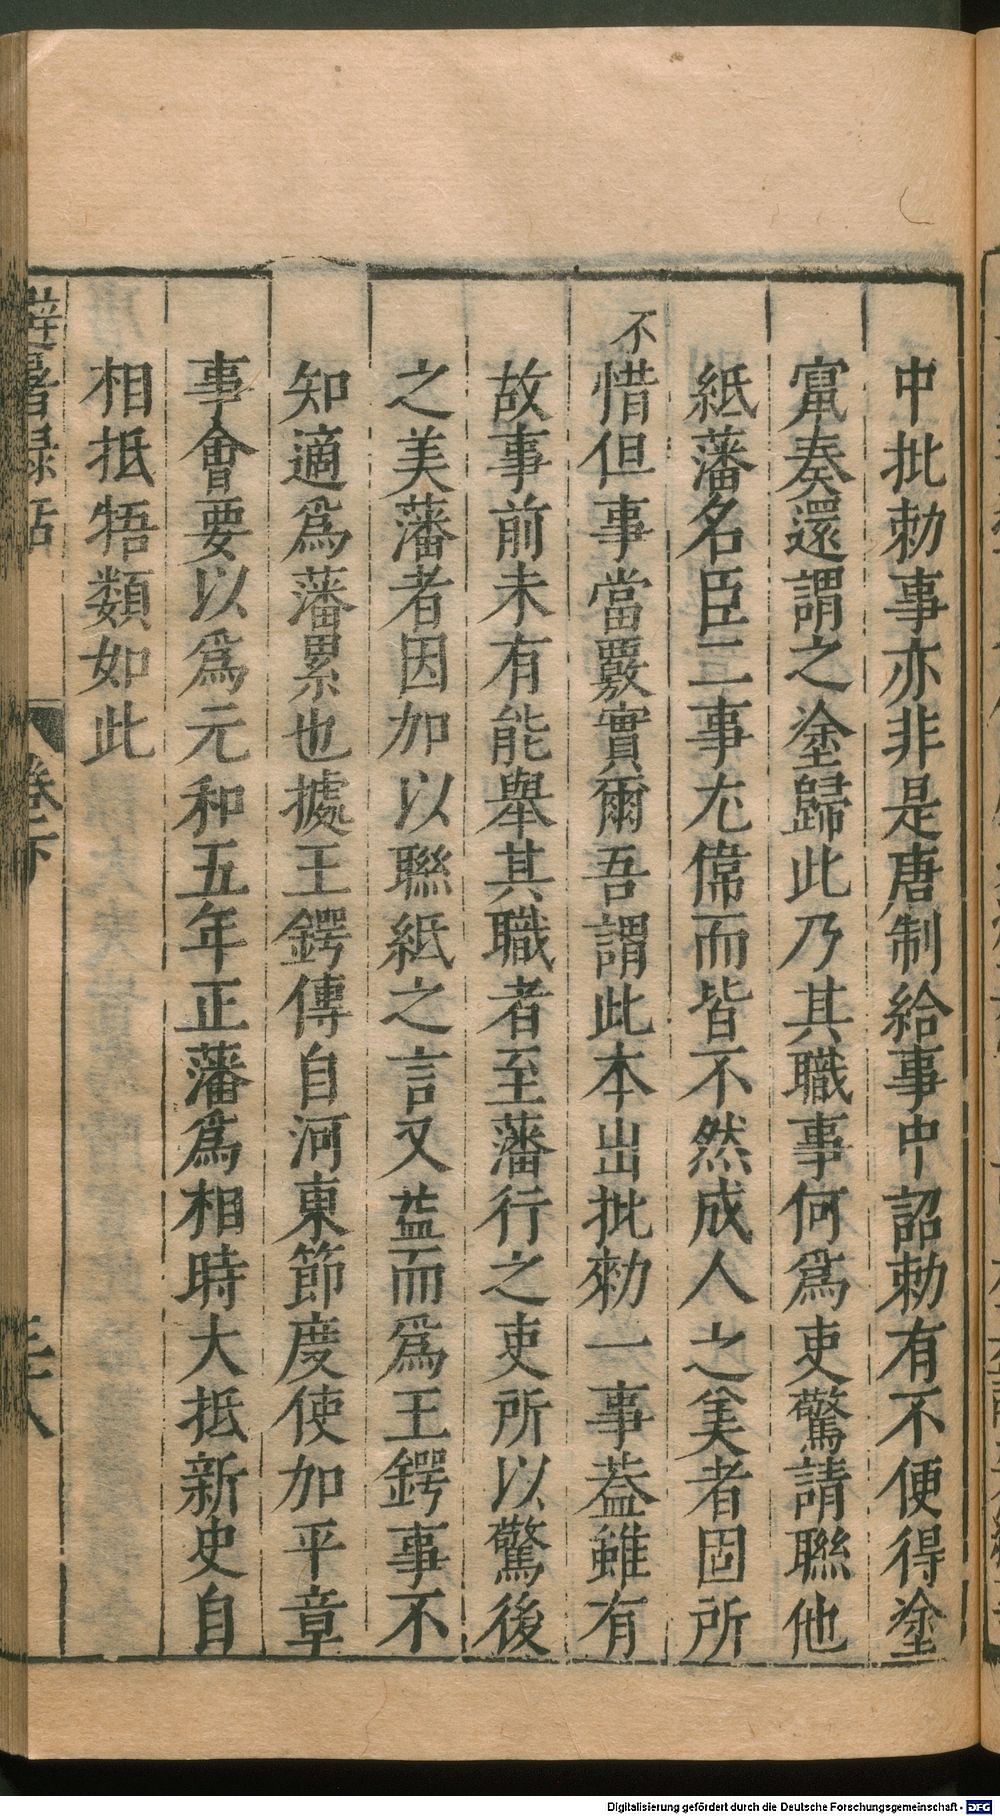 中批勅事亦非是唐制給事中詔勅有不便得塗
竄奏還謂之塗歸此乃其職事何爲吏驚請聯他
紙藩名臣二事尤偉而皆不然成人之美者固所
不惜但事當覈實爾吾謂此本出批勑一事葢雖有
故事前未有能舉其職者至藩行之吏所以驚後
之美藩者因加以聯紙之言又葢而爲王鍔事不
知適爲藩累也據王鍔傳自河東節度使加平章
事會要以爲元和五年正藩爲相時大抵新史自
相抵牾類如此
避暑録話
卷下
三十八
Digitalisierung gefördert durch die Deutsche Forschungsgemeinschaft - DFG